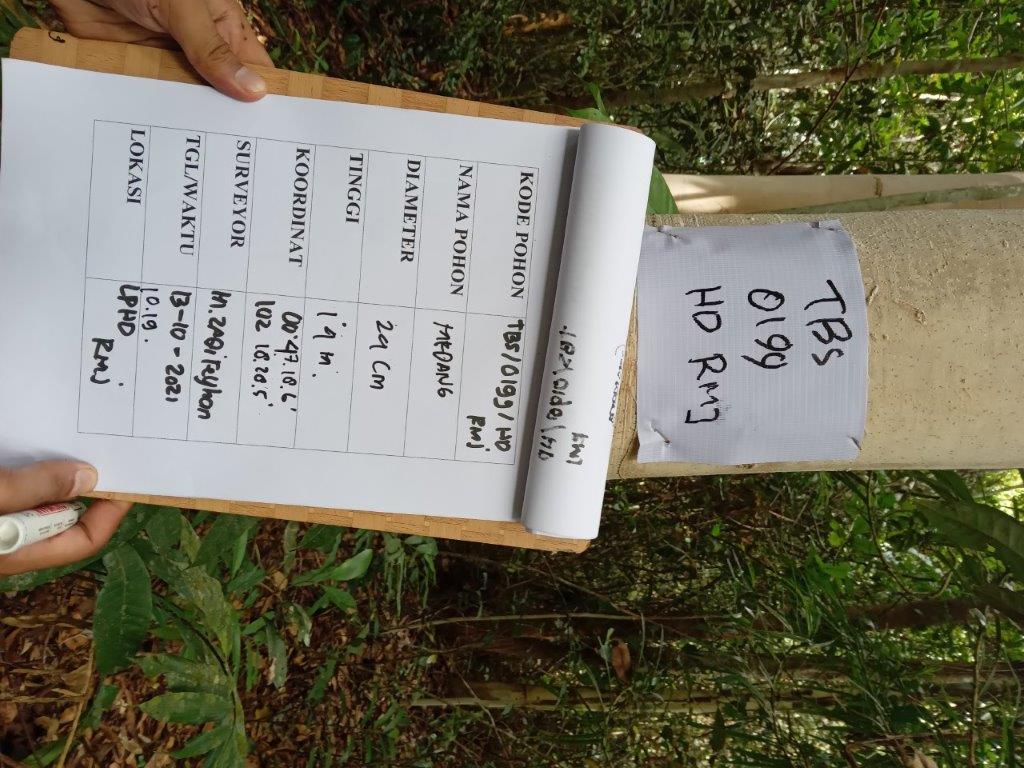 TBS
0199
HD RMJ
KODE POHON TBS/0199/HD
RMJ
NAMA POHON MEDANG
DIAMETER 29 cm
TINGGI 19 m.
KOORDINAT 00°47.18.6'
102 18.20.5'
SURVEYOR M.ZAQi Feyhan
TGL/WAKTU 13-10-2021
10.19.
LOKASI LPHD
RMJ